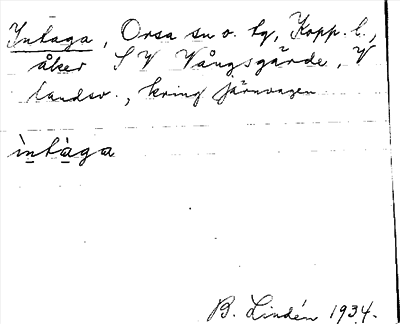 Intaga, Orsa sn o. tg, Kopp. l.,
åker S V Vångsgärde, V
landsv., kring järnvägen
ìntàga
B. Lindén 1934.